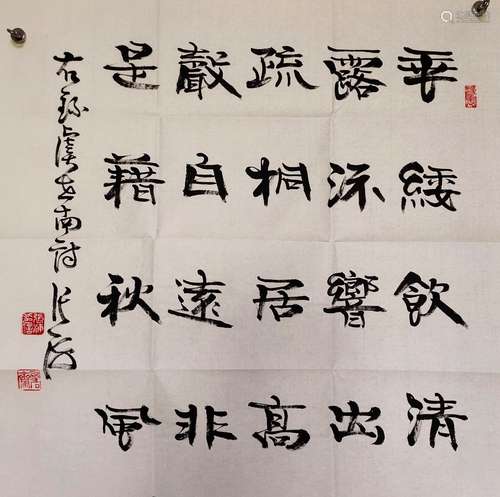 垂緌飲清
露流響出
疏桐居高
聲自遠非
是藉秋風
右錄虞世南詩